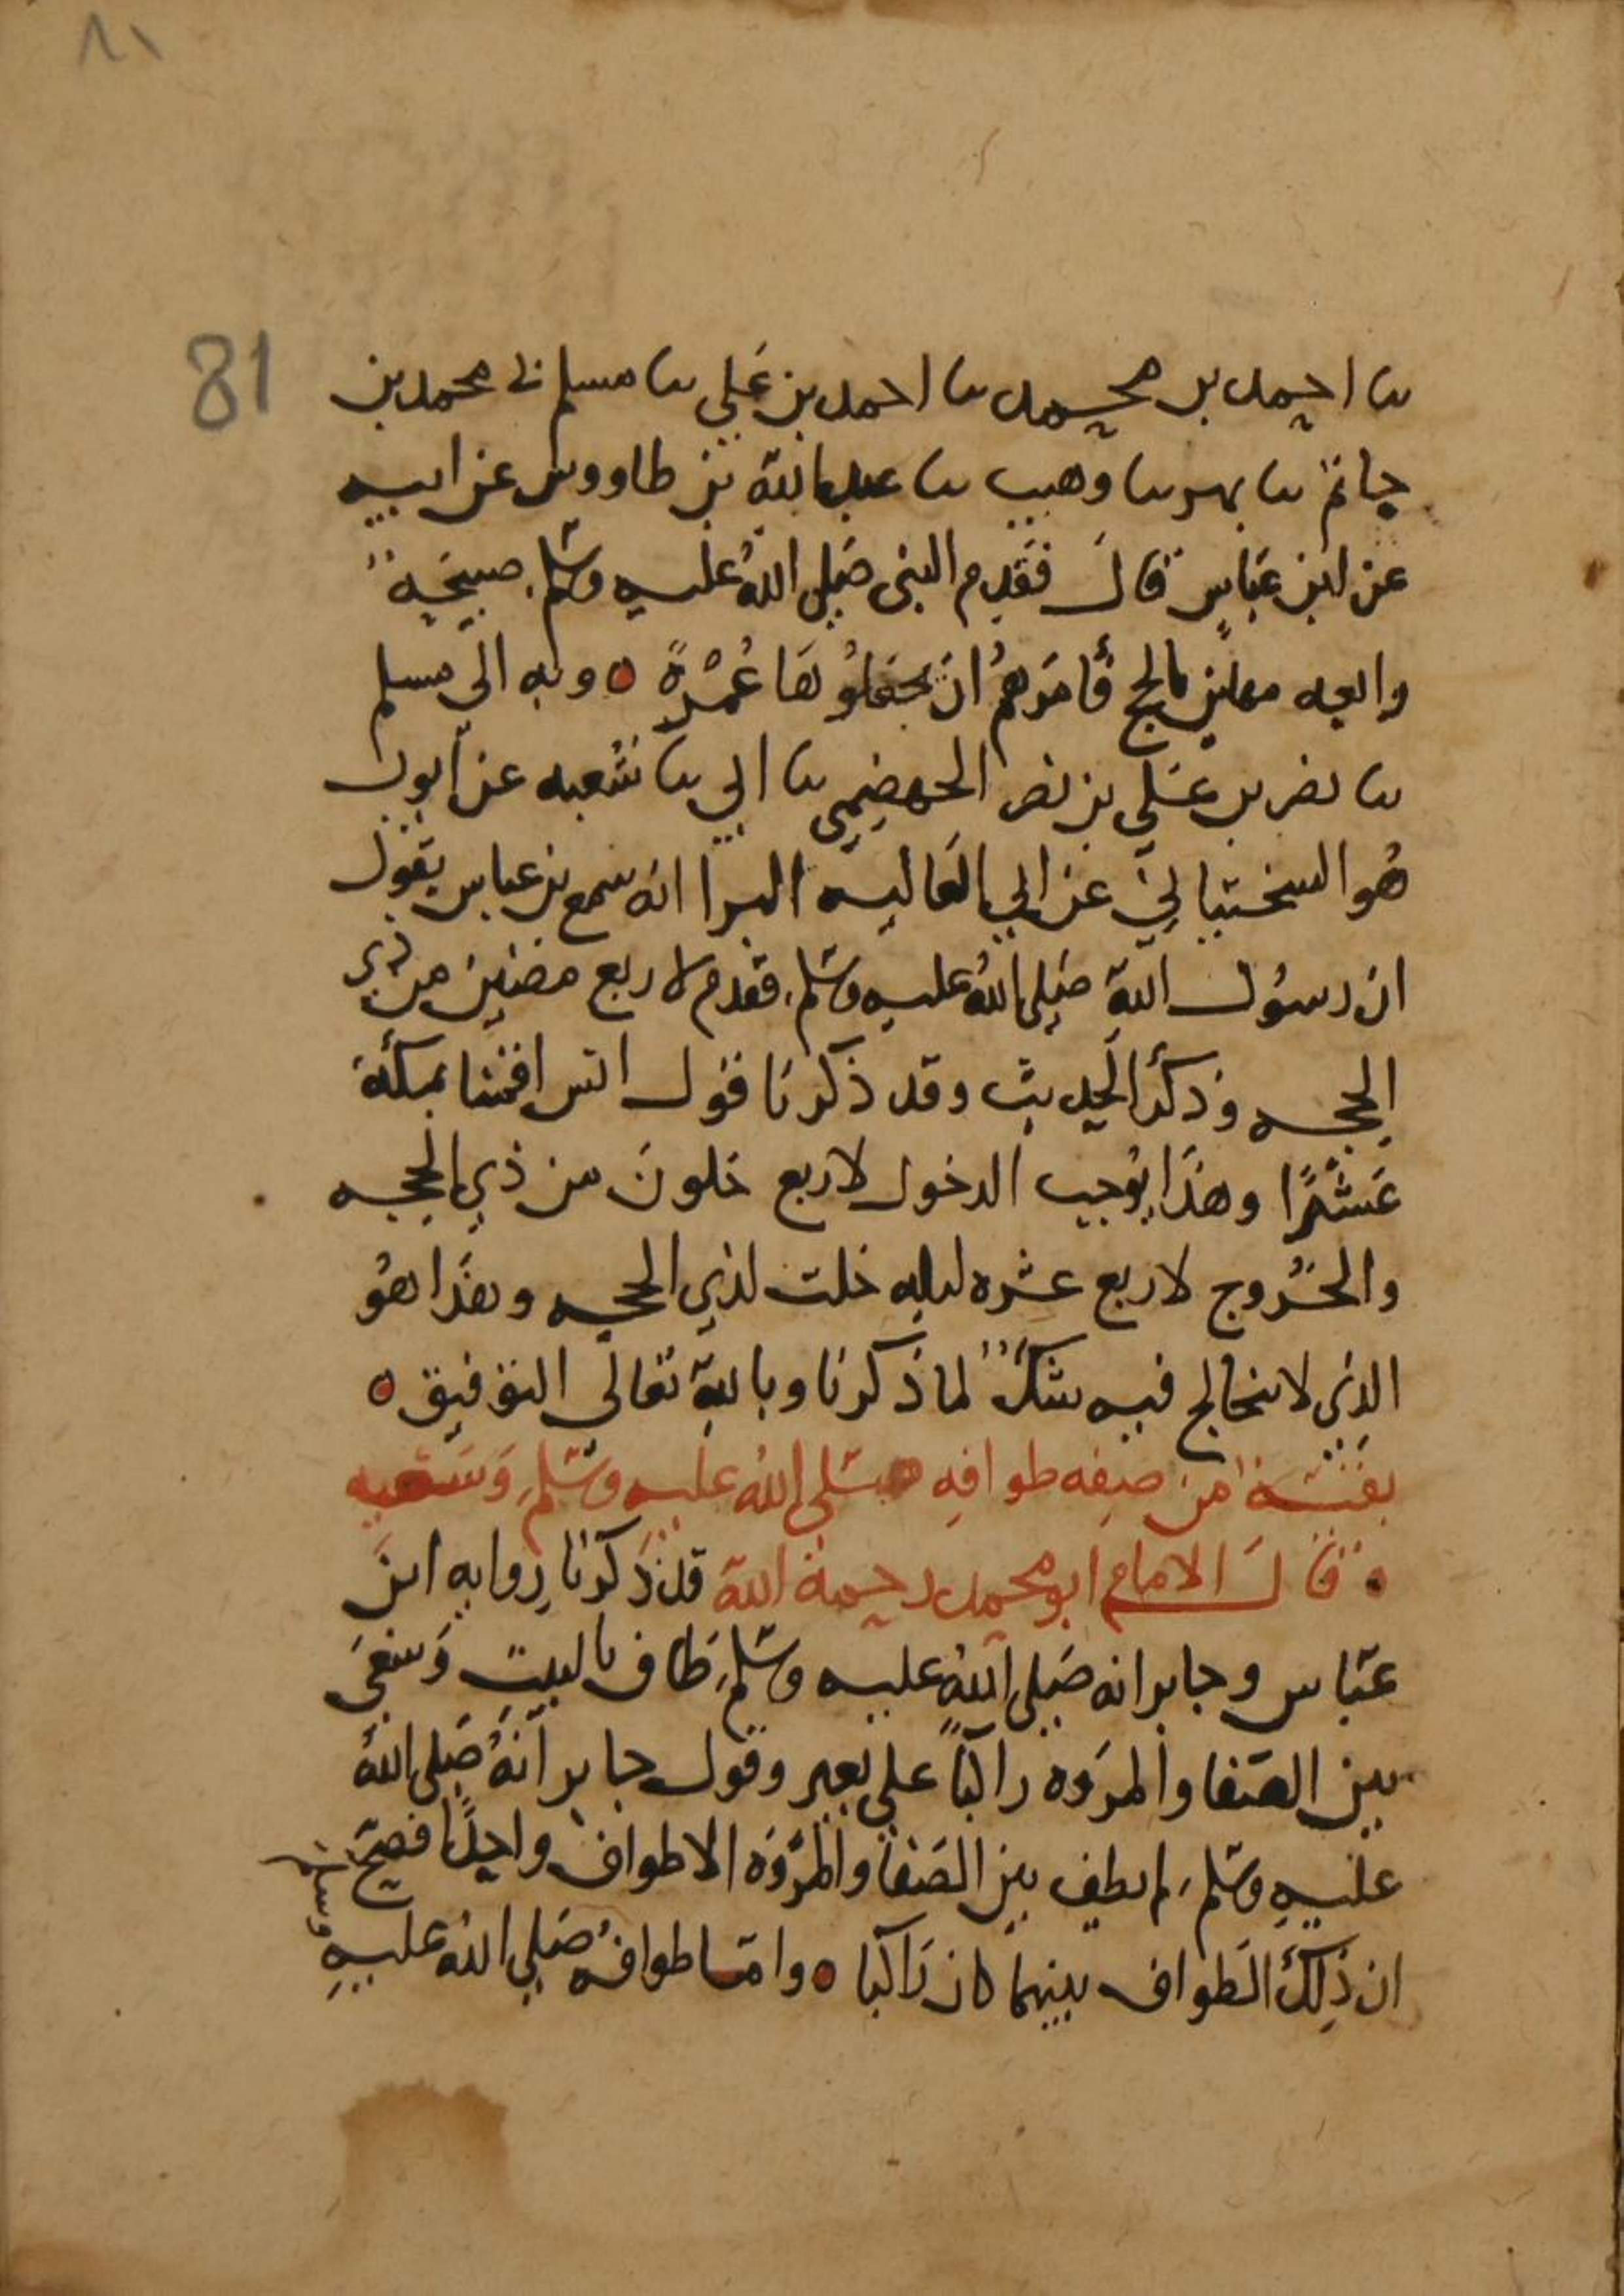 ٨١
81
ثنا احمد بن محمد ثنا احمد بن علي ثنا مسلم ني محمد بن
حاتم ثنا بهز ثنا وهيب ثنا عبد الله بن طاووس عن ابيه
عن ابن عباس قال فقدم النبي صلى الله عليه وسلم صبيحة
رابعه مهلين بالحج فأمرهم ان يجعلوها عُمْرةً ه وبه الى مسلم
ثنا نصر بن علي بن نصر الجهضمي ثنا ابي ثنا شعبه عن ايوب
هو السختياني عن ابي العاليه البرا انه سمع بن عباس يقول
ان رسول الله صلى الله عليه وسلم قدم لاربع مضين من ذي
الحجه وذكر الحديث وقد ذكرنا قول انس اقمنا بمكة
عَشْرًا وهذا يوجب الدخول لاربع خلون من ذي الحجه
والخروج لاربع عشره ليله خلت لذي الحجه وهذا هو
الذي لا يتخالج فيه شكٌ لما ذكرنا وبالله تعالى التوفيق ه
بقية من صفه طوافه صلى الله عليه وسلم وسعيه
ه قال الامام ابو محمد رحمة الله قد ذكرنا روايه ابن
عباس وجابر انه صلى الله عليه وسلم طاف بالبيت وسعى
بين الصفا والمروه راكبًا على بعير وقول جابر انهُ صلى اللهُ
عليه وسلم لم يطف بين الصفا والمروه الا طواف واحدًا فصح
ان ذلك الطواف بينهما كان راكبا ه واما طوافه صلى الله عليه
وسلم